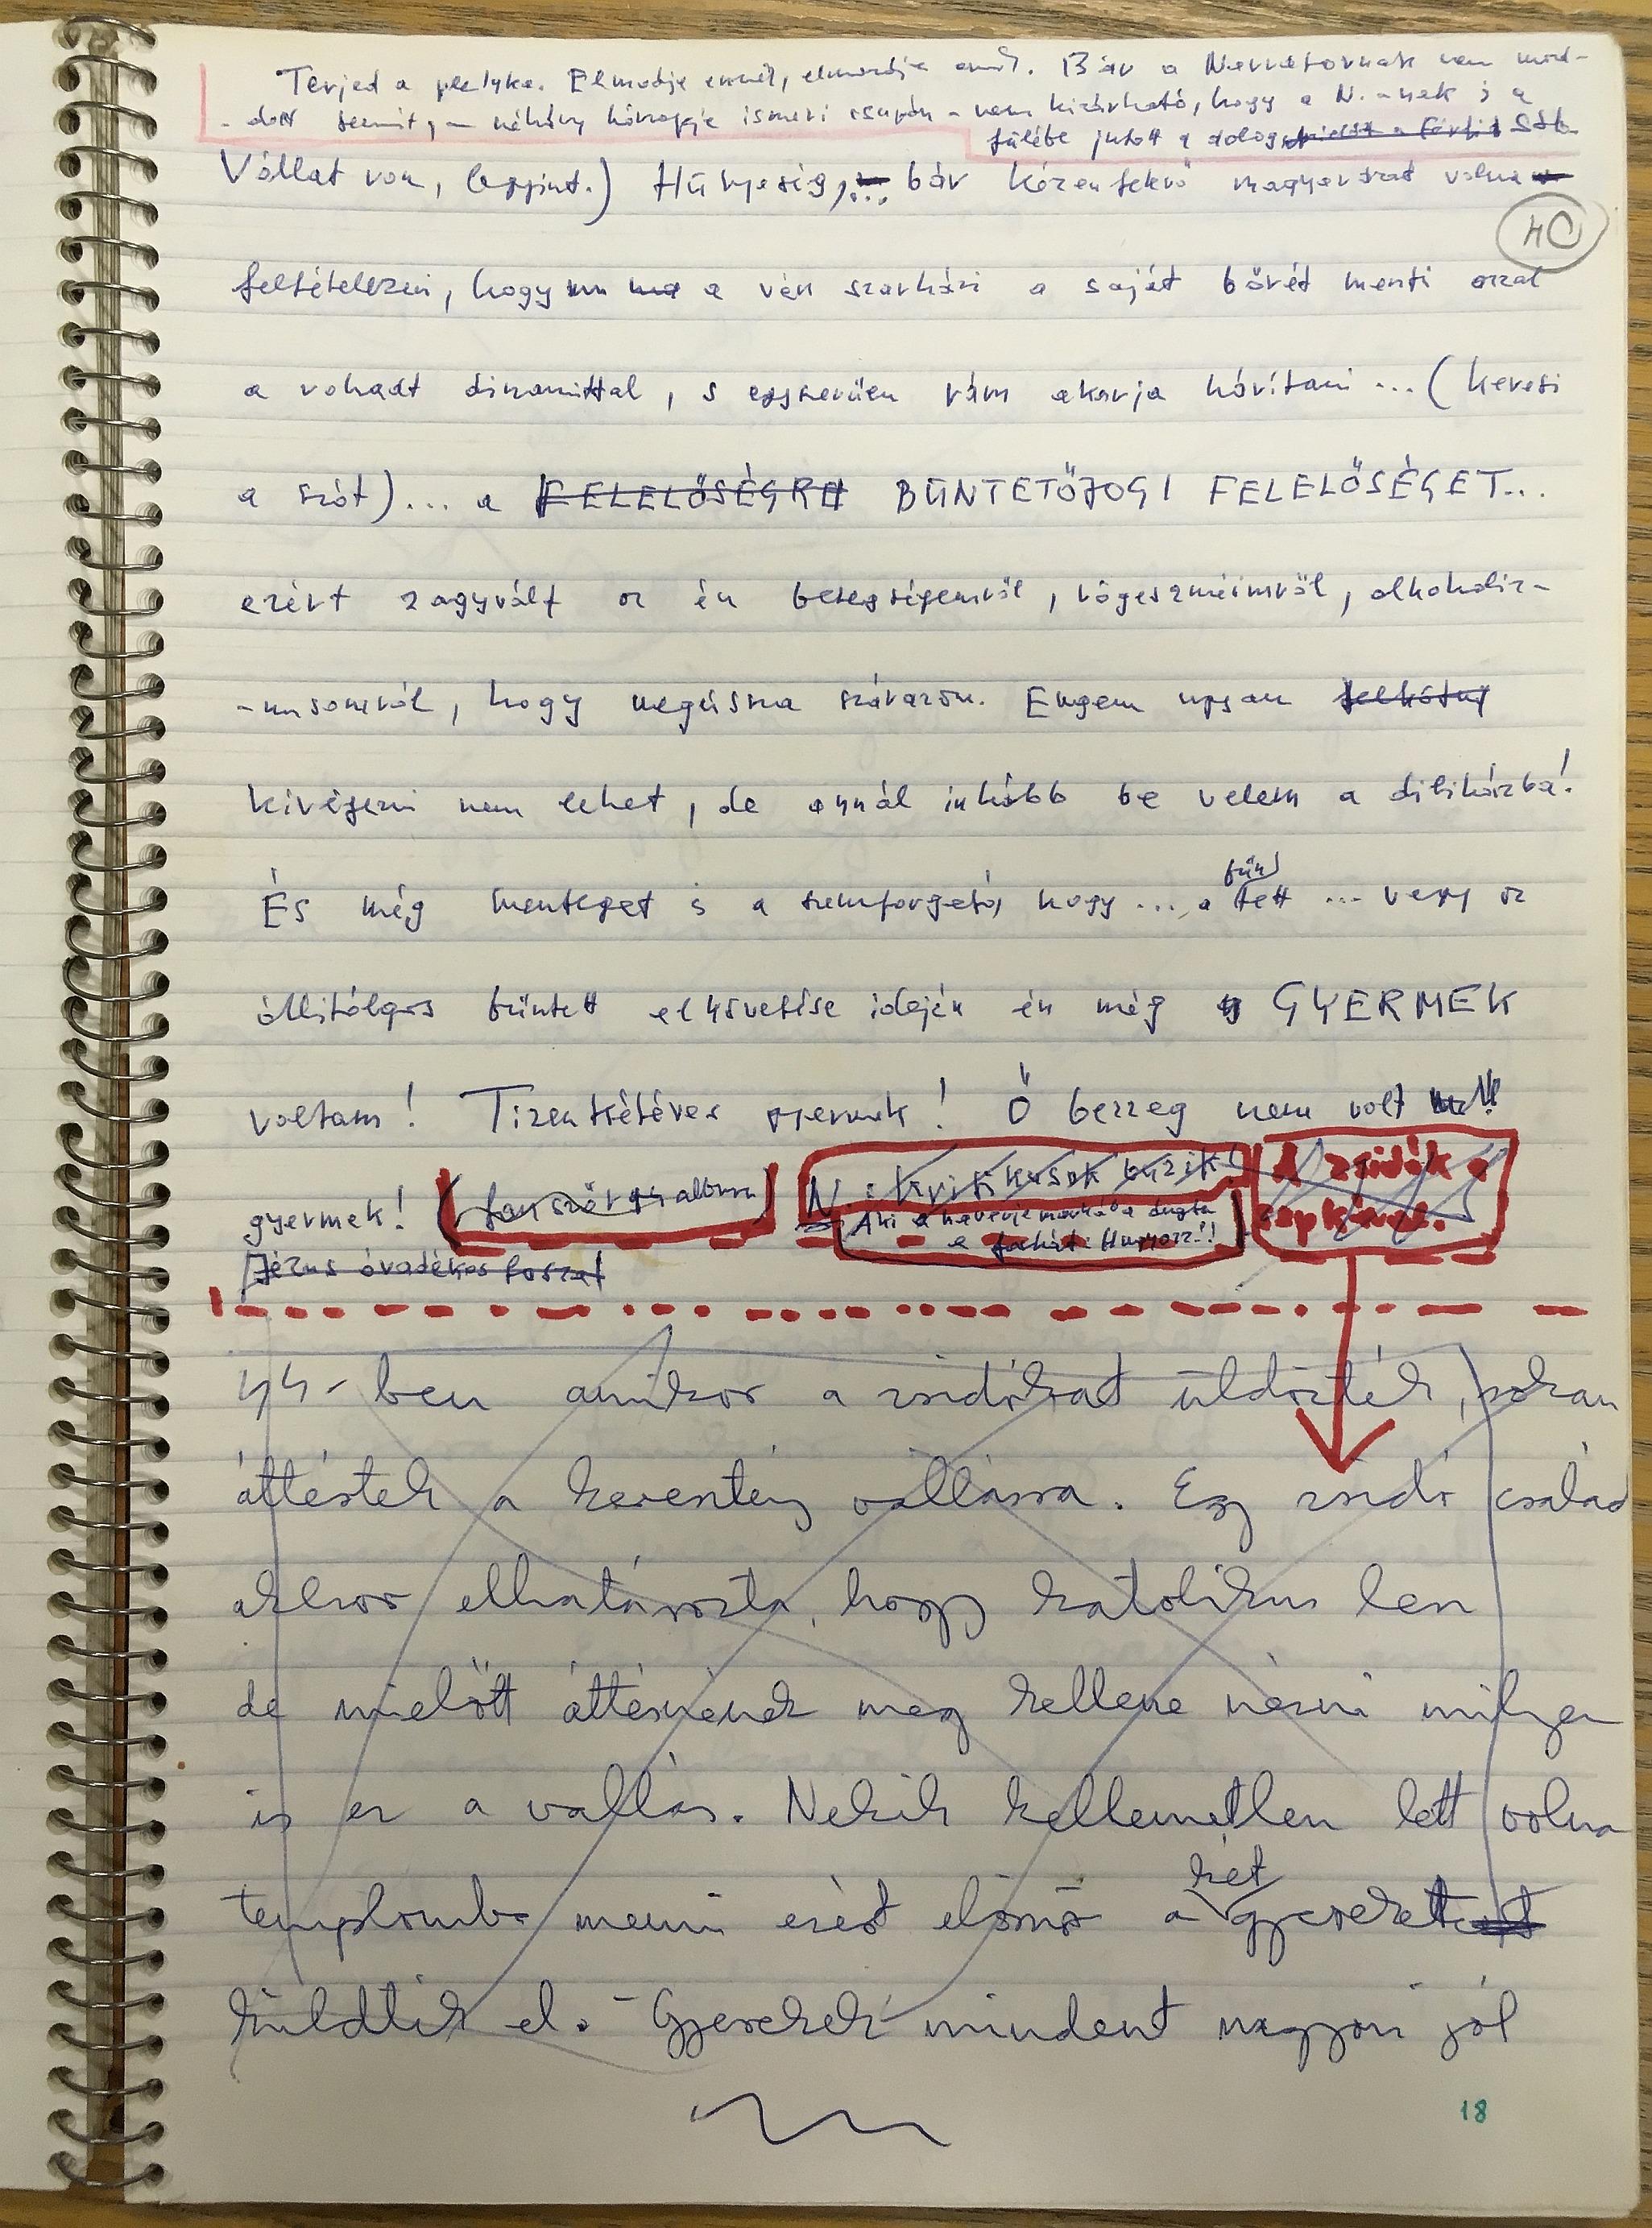 Terjed a pletyka. Elmondja ennek, elmondja annak. Bár a Narrátornak nem mon-
dott semmit, – néhány hónapja ismeri csupán – nem kizárható, hogy a N.-nek is a
fülébe jutott a dolog stb.
Vállat von, legyint.) Hülyeség,... bár kézenfekvő magyarázat volna
40
feltételezni, hogy a vén szarházi a saját bőrét menti azzal
a rohadt dinamittal, s egyszerűen rám akarja hárítani ... (keresi
a szót)... a FELELŐSÉGRE BÜNTETŐJOGI FELELŐSÉGET...
ezért zagyvált az én betegségemről, rögeszméimről, alkoholiz-
-musomról, hogy megússza szárazon. Engem ugyan felkötni
kivégezni nem lehet, de annál inkább be velem a diliházba!
És még menteget is a szemforgató, hogy ... a tett ... vagy az
bűn
állitólagos büntett elkövetése idején én még GYERMEK
voltam! Tizenkétéves gyermek! Ő bezzeg nem volt
gyermek! N: kritikusok buzik! A zsidók
Aki a haverja markába dugta
a
Jézus óvadékos
44-ben amikor a zsidókat üldözték, sokan
áttértek a keresztény vallásra. Egy zsidó család
akkor elhatározta, hogy katolikus lesz
de mielőtt áttérnének meg kellene nézni milyen
is ez a vallás. Nekik kellemetlen lett volna
templomba menni ezért előszőr a gyereket
két
küldték el. – Gyerekek mindent nagyon jól
18